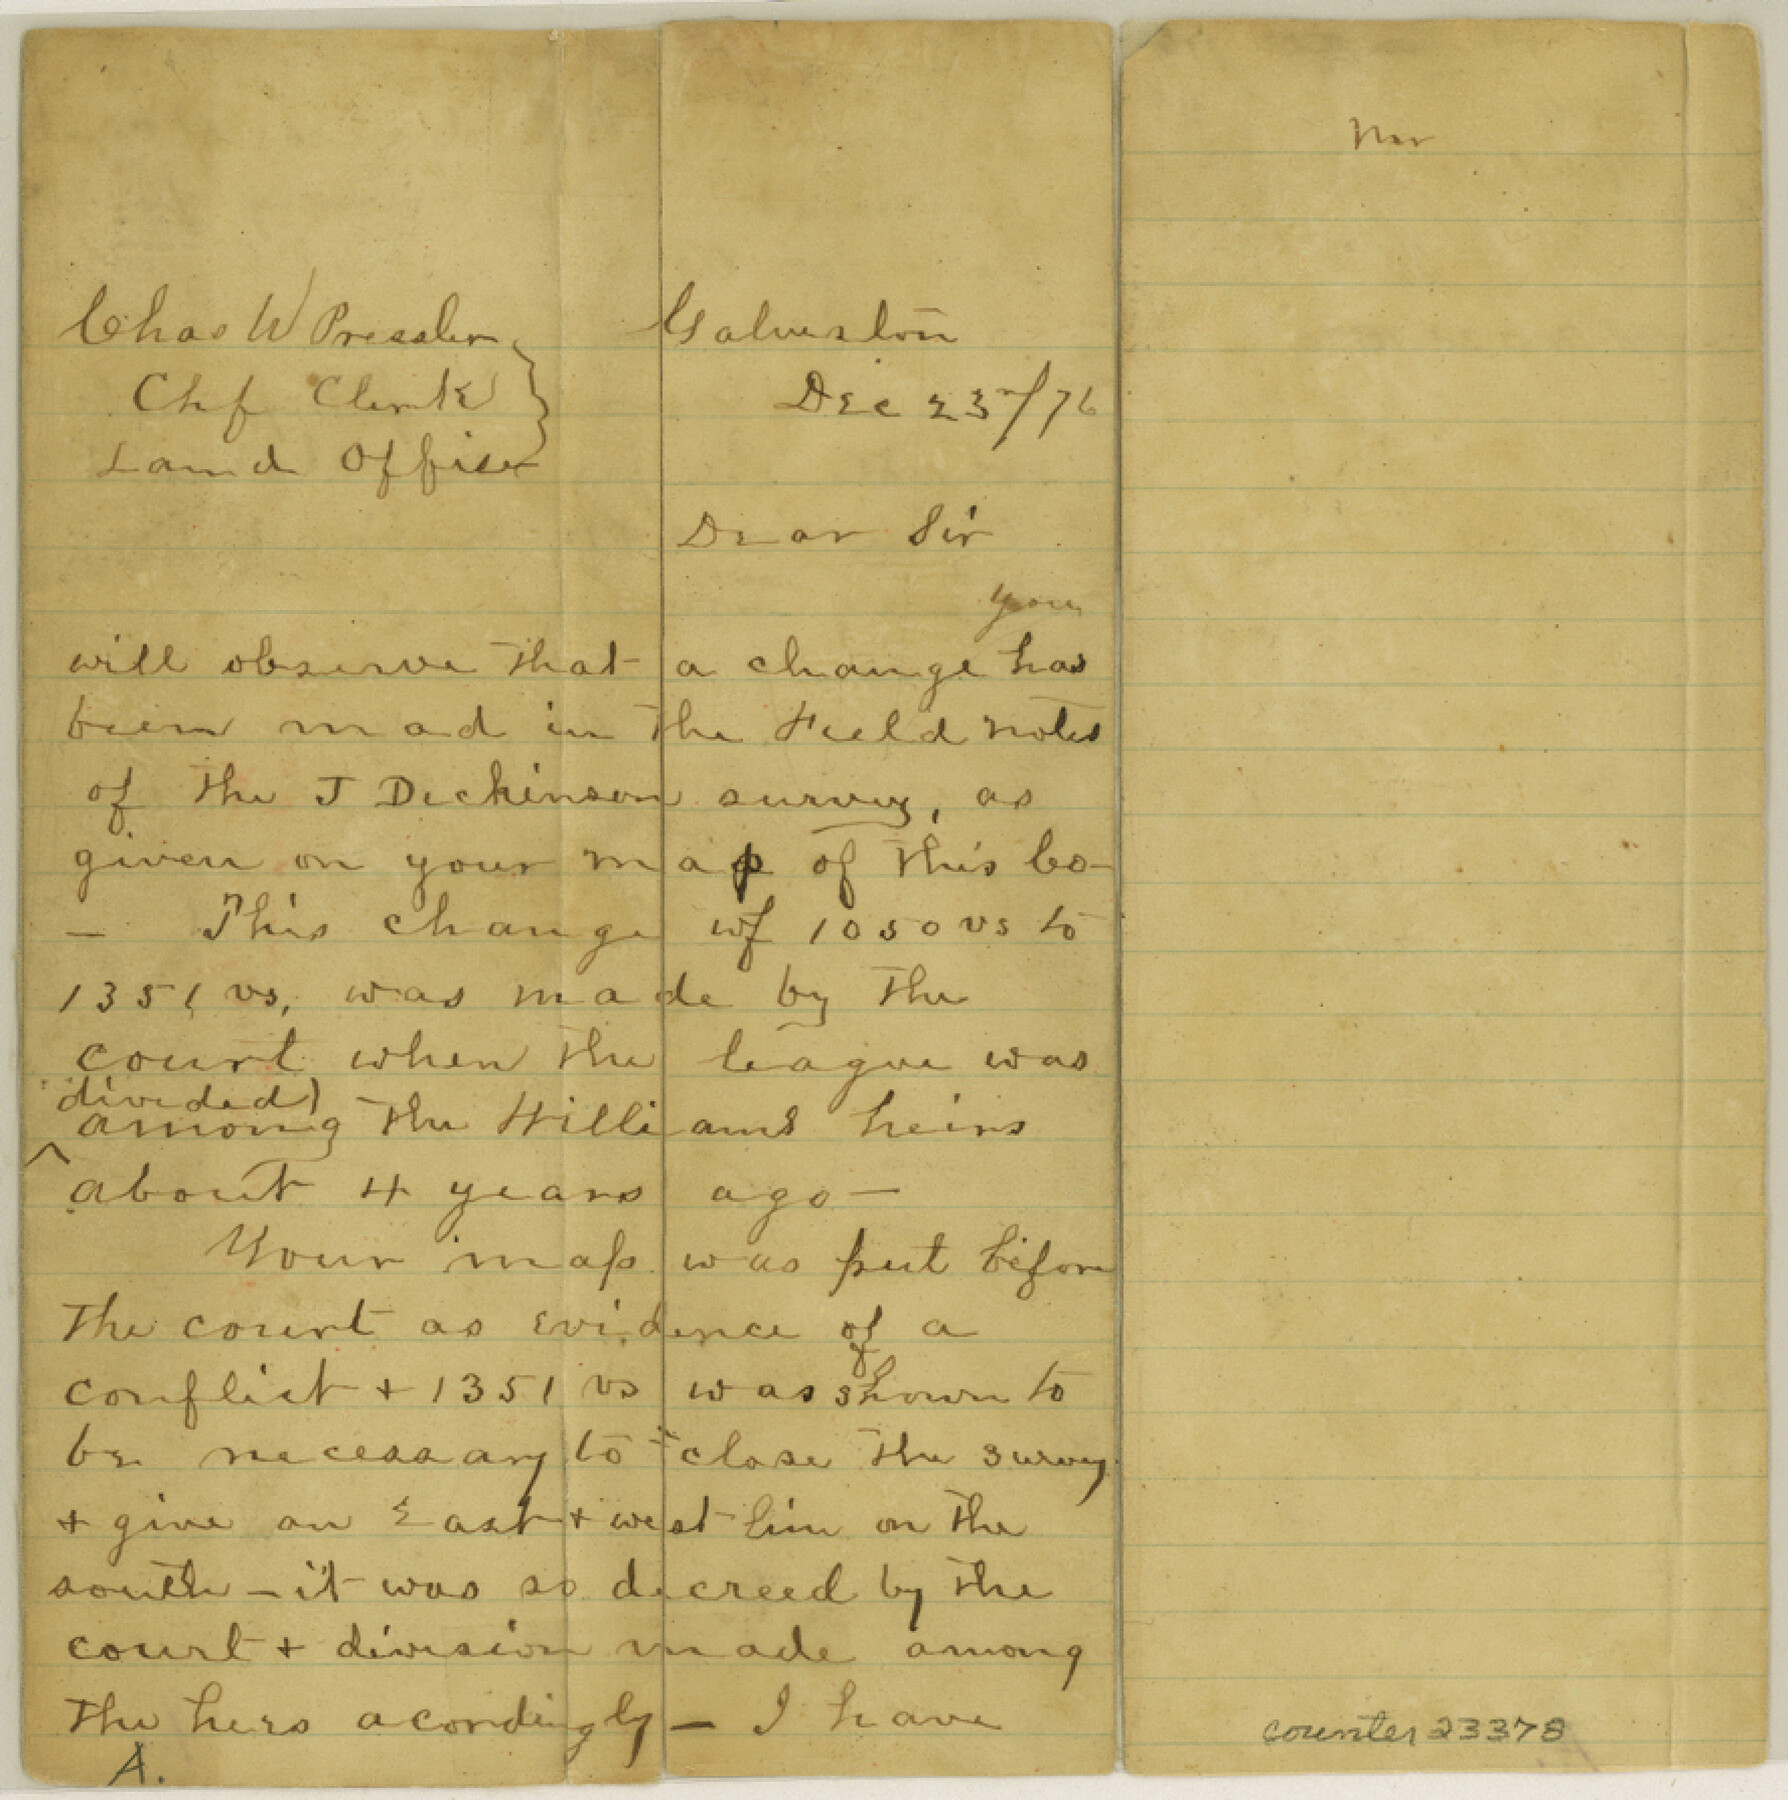 Chas W Pressler
Chf Clerk
Land Office
Galveston
Dec 23rd/76
Dear Sir
you
will observe that a change has
been mad in the Field notes
of the J Dickinson survey, as
given on your map of this Co-
- This change of 1050 vs to
1351 vs, was made by the
court when the league was
divided
among the Williams heirs
about 4 years ago -
Your map was put before
the court as evidence of a
conflict + 1351 vs was shown to
be necessary to close the survey
+ give an East + west line on the
south - it was so decreed by the
court + division made among
the hers acordingly - I have
A.
counter 23378